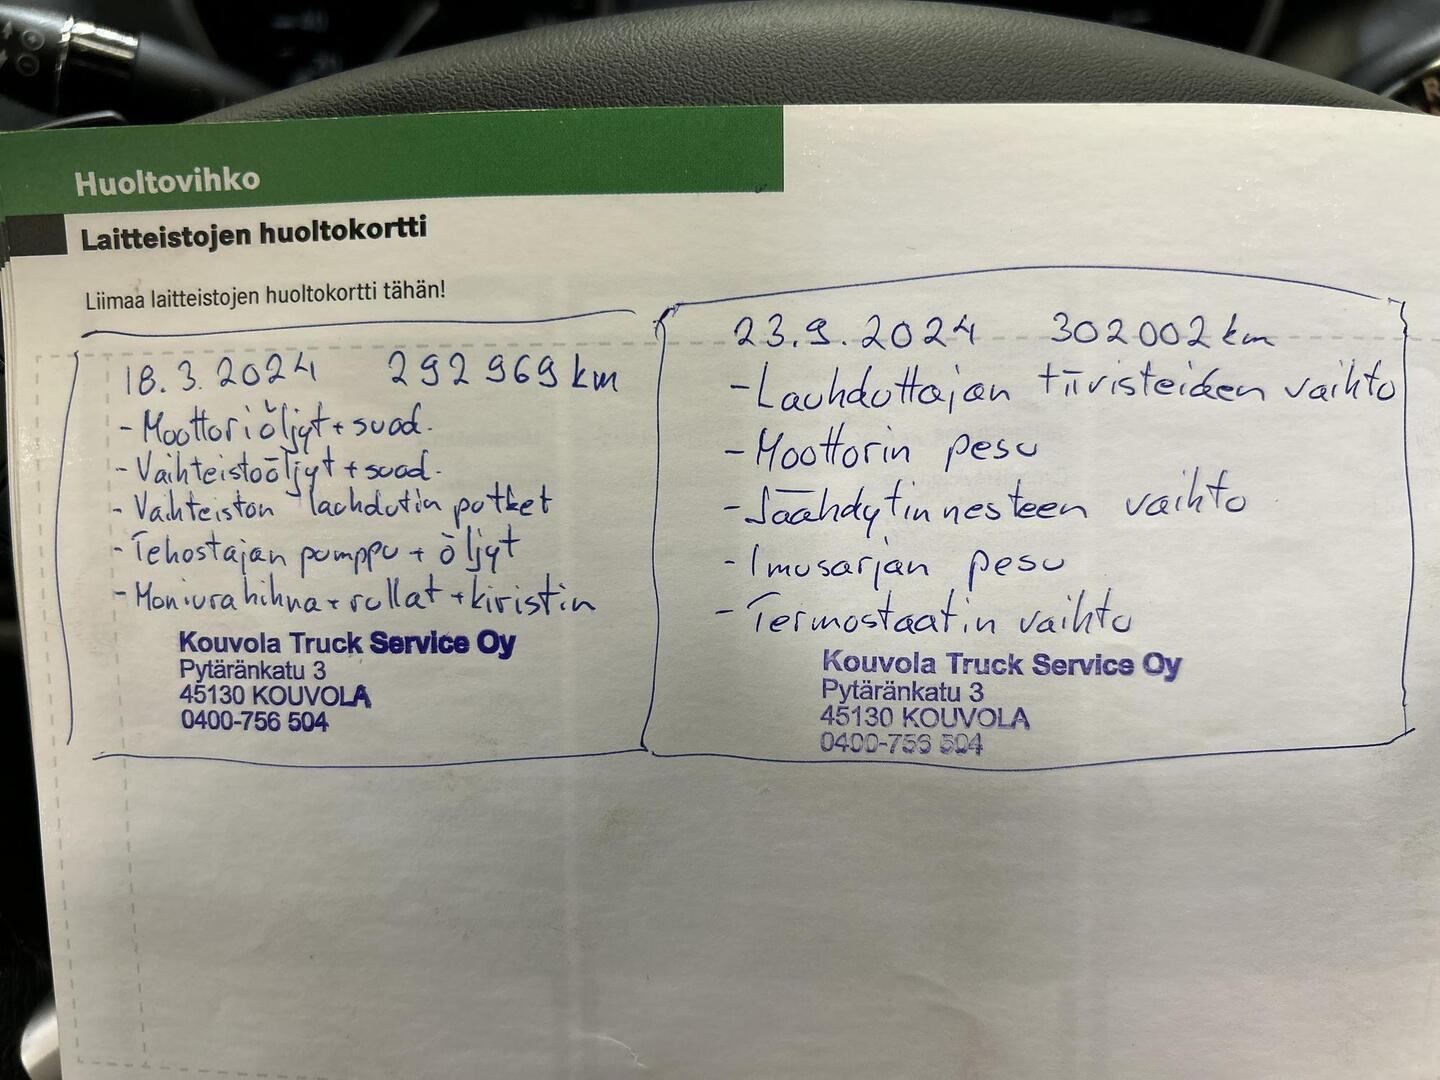 Huoltovihko
Laitteistojen huoltokortti
Liimaa laitteistojen huoltokortti tähän!
18.3.2024 292969 km
- Moottoriöljyt + suod.
- Vaihteistoöljyt + suod.
- Vaihteiston lauhdutin putket
- Tehostajan pumppu + öljyt
- Moniurahihna + rullat + kiristin
Kouvola Truck Service Oy
Pytäränkatu 3
45130 KOUVOLA
0400-756 504
23.9.2024 302002 km
- Lauhduttajan tiivisteiden vaihto
- Moottorin pesu
- Jäähdytinnesteen vaihto
- Imusarjan pesu
- Termostaatin vaihto
Kouvola Truck Service Oy
Pytäränkatu 3
45130 KOUVOLA
0400-756 504